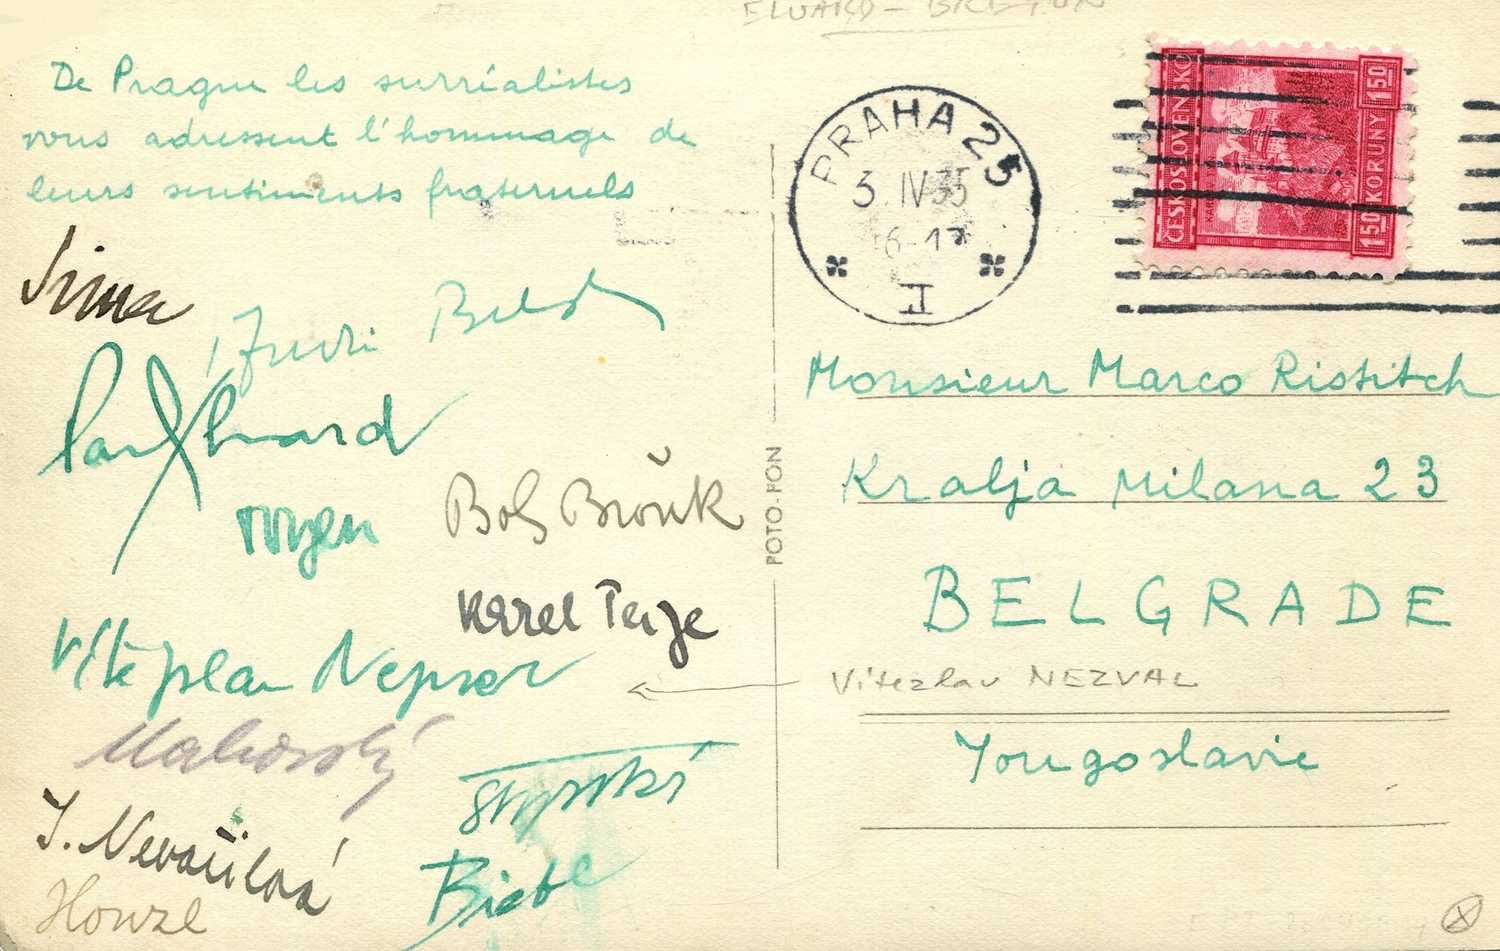 ELUARD - BRETON
De Prague les surréalistes
vous adressent l'hommage de
leurs sentiments fraternels
Sima
Paul Eluard
Toyen
Boh Brouk
Karel Teige
Vítězslav Nezval
Makovský
Štyrský
J. Nevařilová
Biebl
Honzl
FOTO-FON
PRAHA 25
3. IV 35
I
ČESKOSLOVENSKO
1·50 KORUNY 1·50
Monsieur Marco Ristitch
Kralja Milana 23
BELGRADE
Vitezlav NEZVAL
Yougoslavie